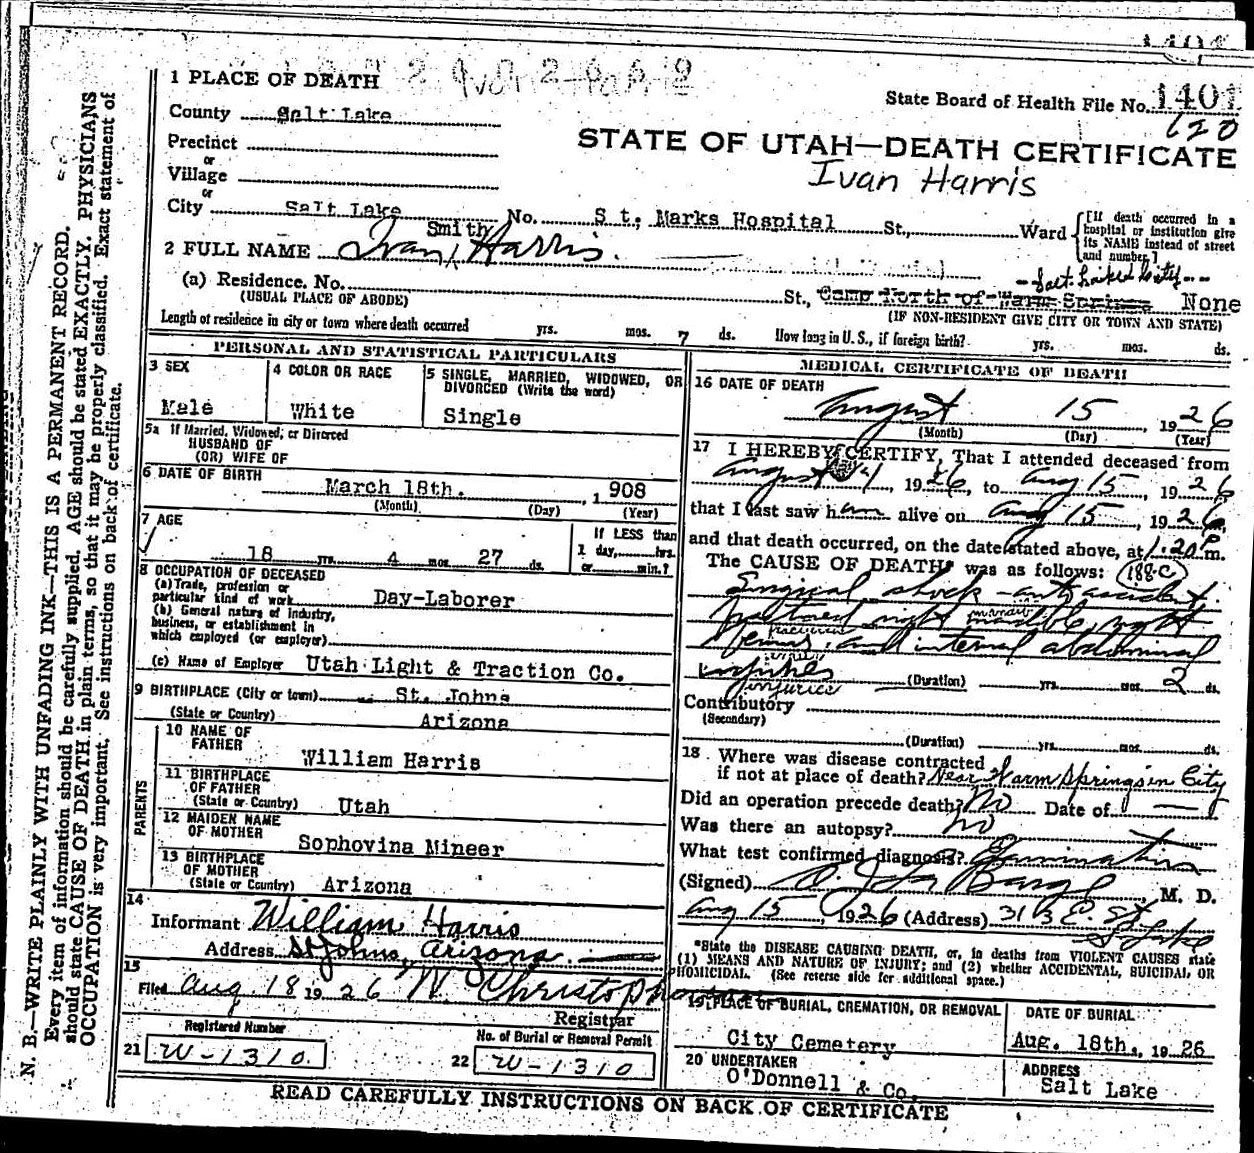 1401
1 PLACE OF DEATH
State Board of Health File No. 1401
120
County Salt Lake
STATE OF UTAH—DEATH CERTIFICATE
Precinct
or
Ivan Harris
Village
or
City Salt Lake No. St. Marks Hospital St., Ward
[If death occurred in a hospital or institution give its NAME instead of street and number]
Smith
2 FULL NAME Ivan Harris.
Salt Lake City
(a) Residence. No. St., Camp North of Warm Springs None
(USUAL PLACE OF ABODE) (IF NON-RESIDENT GIVE CITY OR TOWN AND STATE)
Length of residence in city or town where death occurred yrs. mos. 7 ds. How long in U.S., if foreign birth? yrs. mos. ds.
PERSONAL AND STATISTICAL PARTICULARS
3 SEX 4 COLOR OR RACE 5 SINGLE, MARRIED, WIDOWED, OR DIVORCED (Write the word)
Male White Single
5a If Married, Widowed, or Divorced
HUSBAND OF
(OR) WIFE OF
6 DATE OF BIRTH March 18th. , 1908
(Month) (Day) (Year)
7 AGE If LESS than
18 yrs. 4 mos. 27 ds. 1 day, hrs.
or min.?
8 OCCUPATION OF DECEASED
(a) Trade, profession or
particular kind of work Day-Laborer
(b) General nature of industry,
business, or establishment in
which employed (or employer)
(c) Name of Employer Utah Light & Traction Co.
9 BIRTHPLACE (City or town) St. Johns
(State or Country) Arizona
PARENTS
10 NAME OF
FATHER William Harris
11 BIRTHPLACE
OF FATHER
(State or Country) Utah
12 MAIDEN NAME
OF MOTHER Sophovina Mineer
13 BIRTHPLACE
OF MOTHER
(State or Country) Arizona
14
Informant William Harris
Address St Johns, Arizona.
15
Filed Aug 18 1926 W Christoph
Registrar
Registered Number No. of Burial or Removal Permit
21 W-1310. 22 W-1310
MEDICAL CERTIFICATE OF DEATH
16 DATE OF DEATH
August 15, 1926
(Month) (Day) (Year)
17 I HEREBY CERTIFY, That I attended deceased from
August , 1926, to Aug 15, 1926
that I last saw him alive on Aug 15, 1926,
and that death occurred, on the date stated above, at 1.20 P m.
The CAUSE OF DEATH* was as follows: 188c
Surgical shock - auto accident.
fractured right mandible, right
femur, and internal abdominal
injuries (Duration) yrs. mos. 2 ds.
injuries
Contributory
(Secondary)
(Duration) yrs. mos. ds.
18 Where was disease contracted
if not at place of death? Near Warm Springs in City
Did an operation precede death? No Date of —
Was there an autopsy? no
What test confirmed diagnosis? Examination
(Signed) M. D.
Aug 15, 1926 (Address) 313 E. St
S Lake
*State the DISEASE CAUSING DEATH, or, in deaths from VIOLENT CAUSES state
(1) MEANS AND NATURE OF INJURY; and (2) whether ACCIDENTAL, SUICIDAL OR
HOMICIDAL. (See reverse side for additional space.)
19 PLACE OF BURIAL, CREMATION, OR REMOVAL DATE OF BURIAL
City Cemetery Aug. 18th., 1926
20 UNDERTAKER ADDRESS
O'Donnell & Co. Salt Lake
READ CAREFULLY INSTRUCTIONS ON BACK OF CERTIFICATE
N. B.—WRITE PLAINLY WITH UNFADING INK—THIS IS A PERMANENT RECORD.
Every item of information should be carefully supplied. AGE should be stated EXACTLY. PHYSICIANS
should state CAUSE OF DEATH in plain terms, so that it may be properly classified. Exact statement of
OCCUPATION is very important. See instructions on back of certificate.